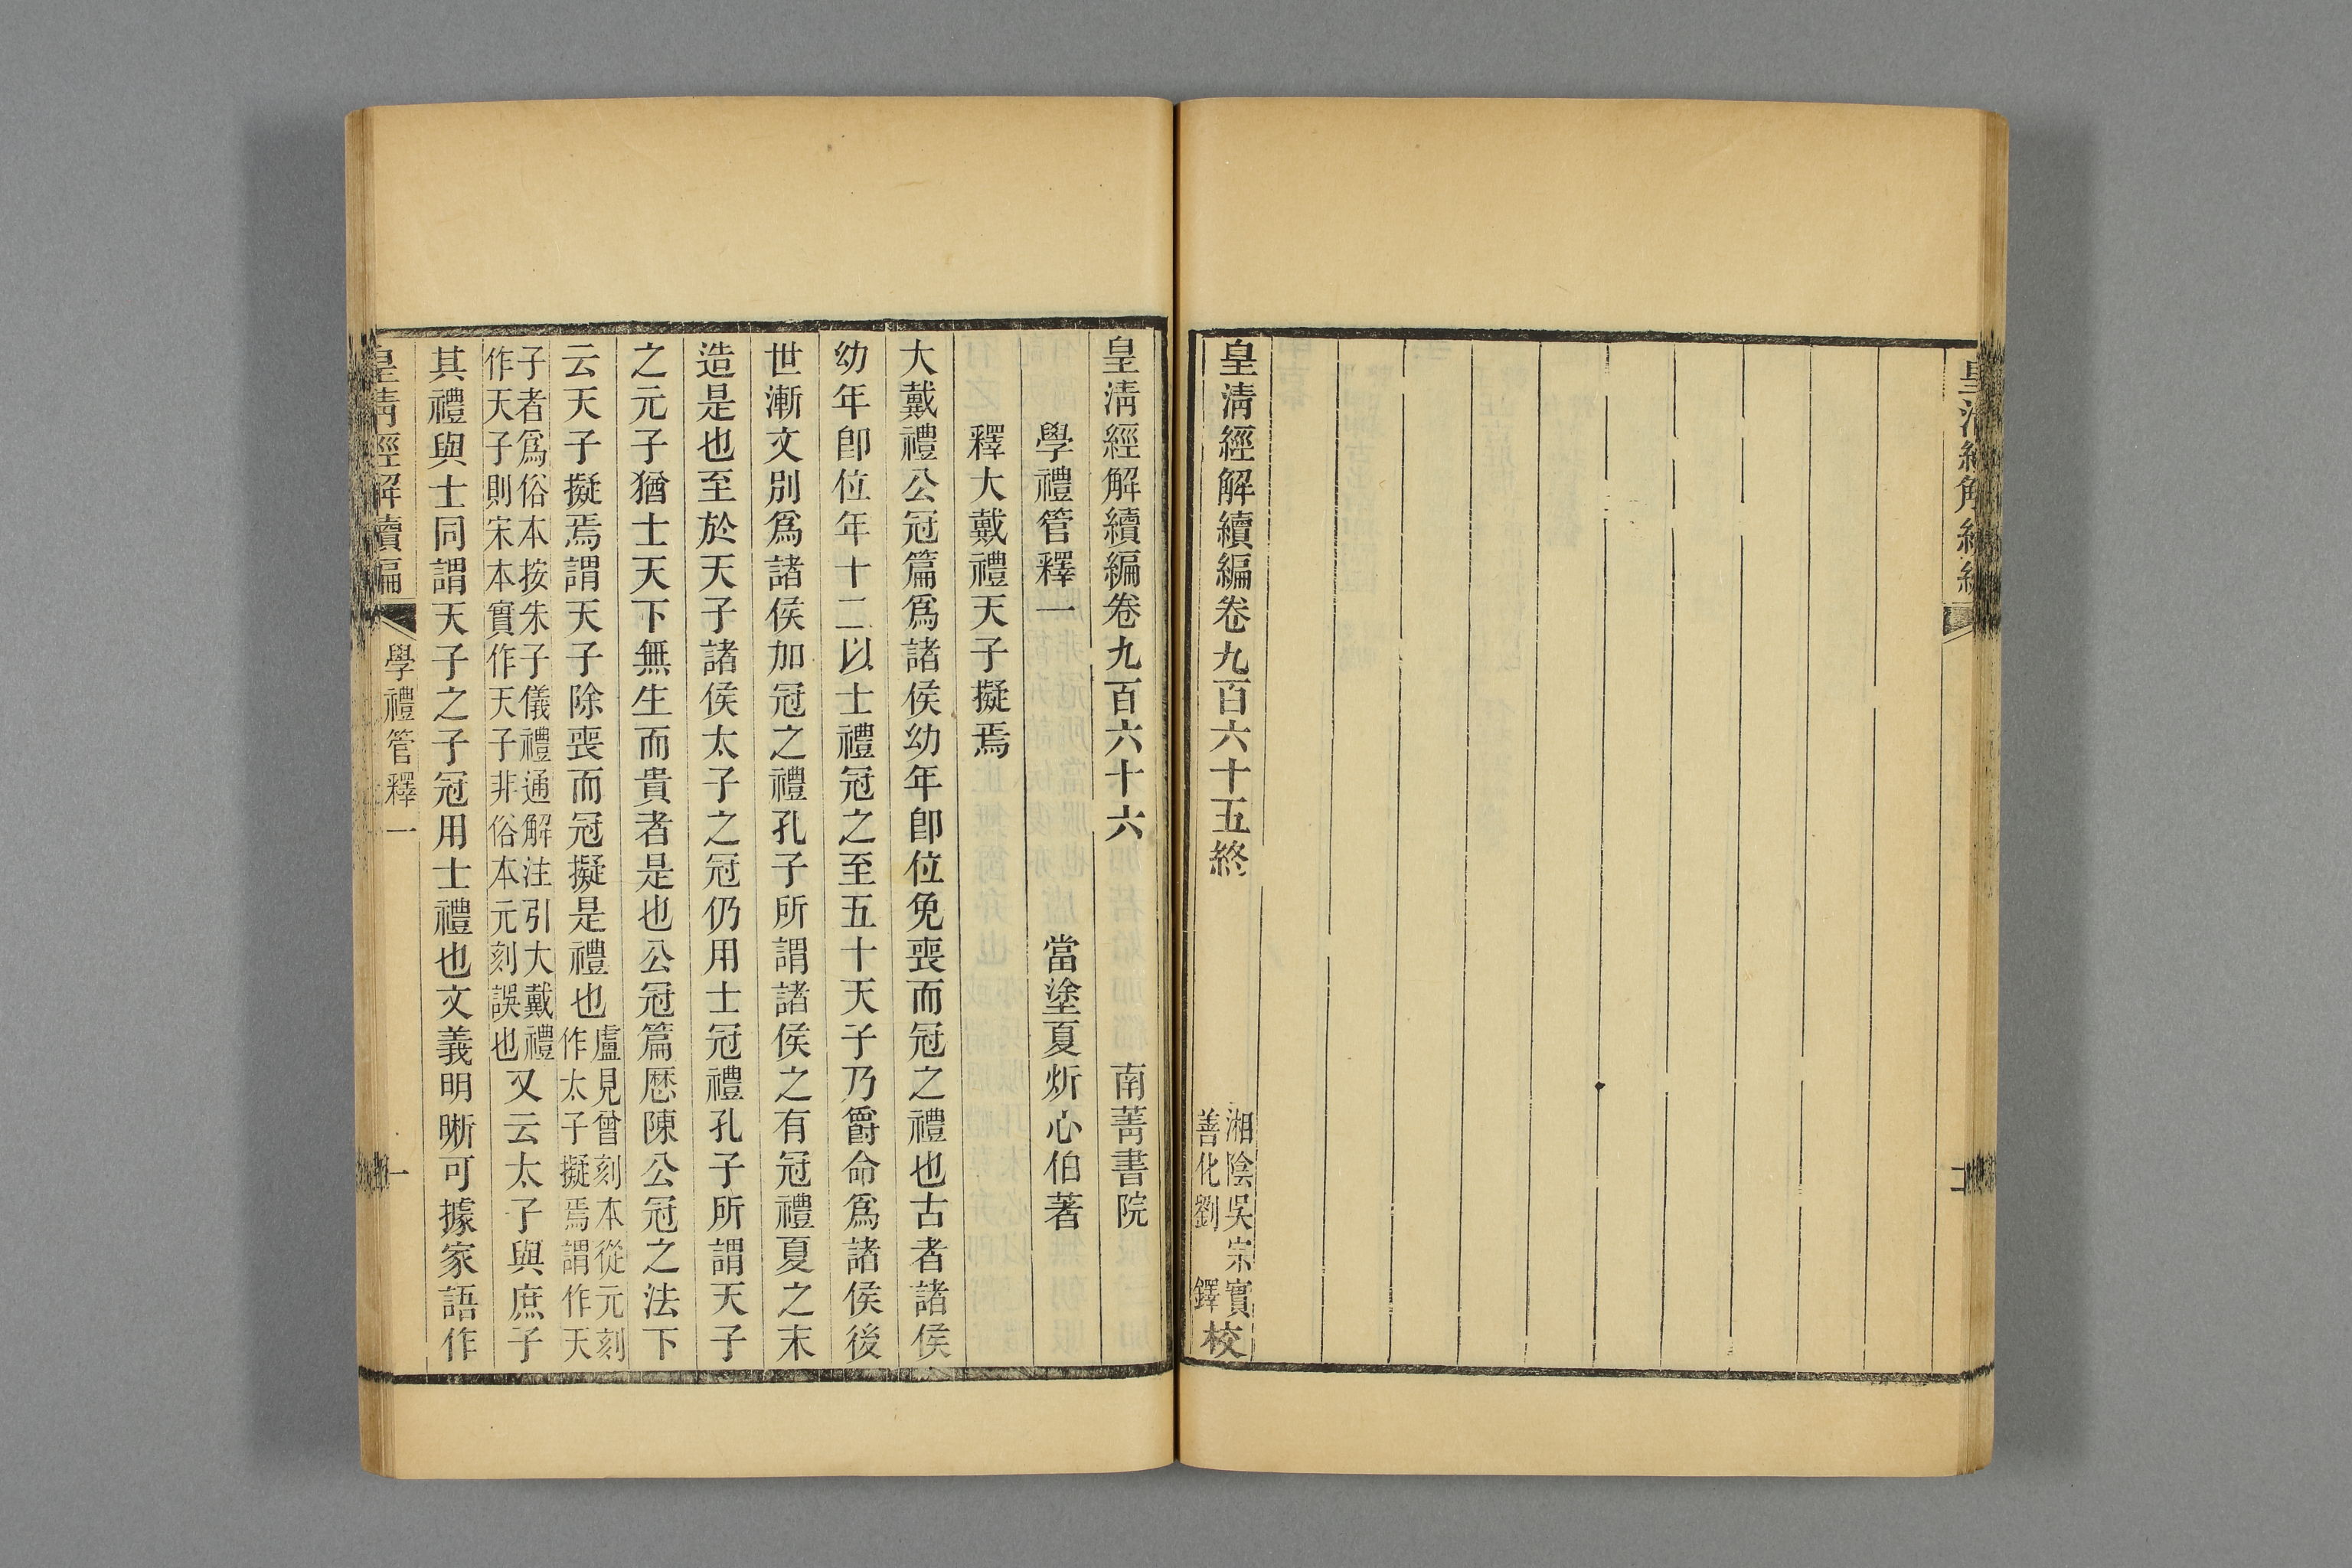 皇清經解續編卷九百六十五終
湘陰吳宗實
善化劉鐸
校
皇清經解續編卷九百六十六
南菁書院
學禮管釋一
當塗夏炘心伯著
釋大戴禮天子擬焉
大戴禮公冠篇爲諸侯幼年卽位免喪而冠之禮也古者諸侯
幼年卽位年十二以士禮冠之至五十天子乃爵命爲諸侯後
世漸文別爲諸侯加冠之禮孔子所謂諸侯之有冠禮夏之末
造是也至於天子諸侯太子之冠仍用士冠禮孔子所謂天子
之元子猶士天下無生而貴者是也公冠篇厯陳公冠之法下
云天子擬焉謂天子除喪而冠擬是禮也
盧見曾刻本從元刻
作太子擬焉謂作天
子者爲俗本按朱子儀禮通解注引大戴禮
作天子則宋本實作天子非俗本元刻誤也
又云太子與庶子
其禮與士同謂天子之子冠用士禮也文義明晰可據家語作
皇清經解續編
學禮管釋一
一